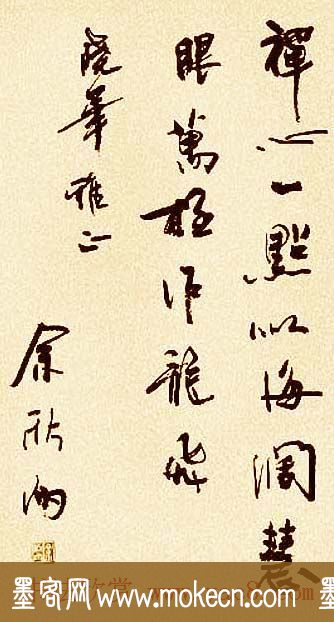 禪心一點似海闊慧
眼萬作龍飛
曉華雅正
余秋雨
墨客网 www.mokecn.com